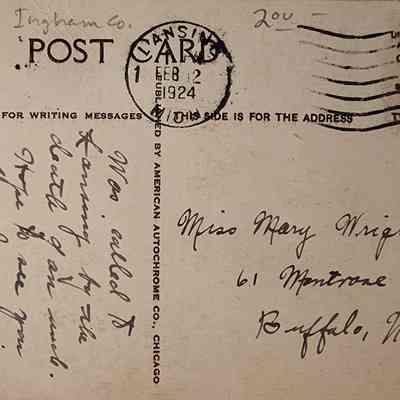 Ingham Co.
200 -
POST CARD
LANSING
FEB 2
1924
MICH
FOR WRITING MESSAGES
THIS SIDE IS FOR THE ADDRESS
PUBLISHED BY AMERICAN AUTOCHROME CO., CHICAGO
Was called to
Lansing by the
death of an uncle.
Hope to see you
Miss Mary Wrigh
61 Montrose
Buffalo, N